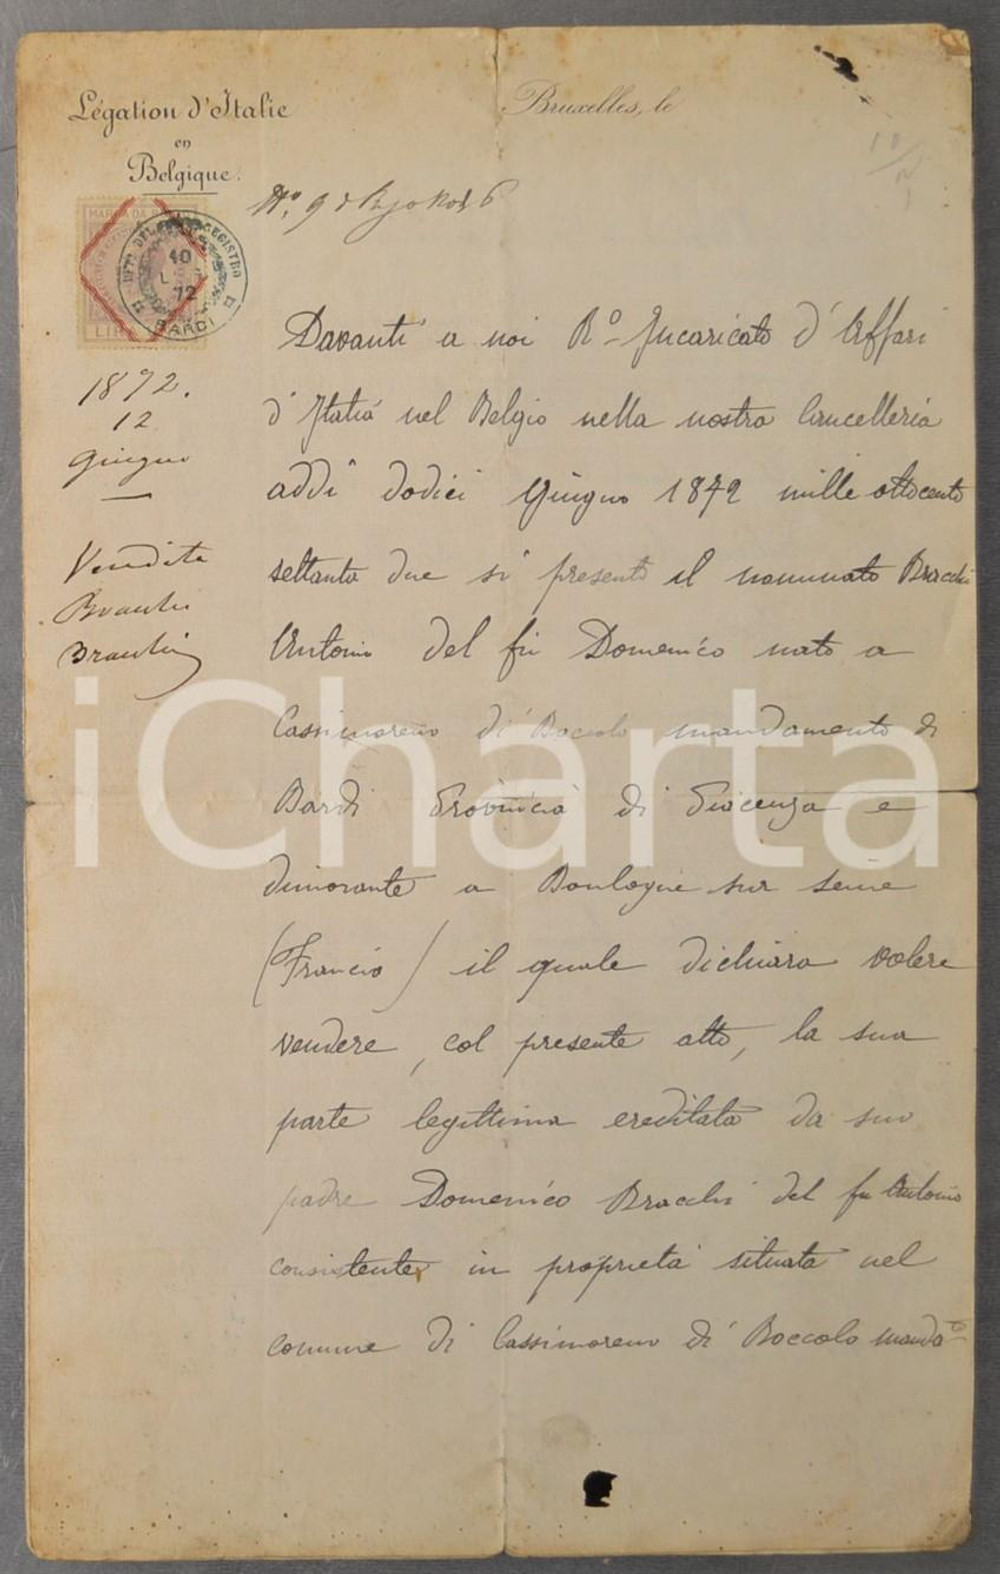 Légation d'Italie
en
Belgique.
Bruxelles, le
MARCA DA
LIR
REGISTRO
10
L
72
BARDI
1872.
12
Giugno
Vendita
Bracchi
Bracchi
Davanti a noi Rº Incaricato d'Affari
d'Italia nel Belgio nella nostra Cancelleria
addi dodici Giugno 1872 mille ottocento
settanta due si presentò il nominato Bracchi
Antonio del fu Domenico nato a
Cassimoreno di Boccolo mandamento di
Bardi Provincia di Piacenza e
dimorante a Boulogne sur Seine
(Francia) il quale dichiara volere
vendere, col presente atto, la sua
parte legittima ereditata da suo
padre Domenico Bracchi del fu Antonio
consistente in proprietà situata nel
comune di Cassimoreno di Boccolo mandᵗᵒ
iCharta